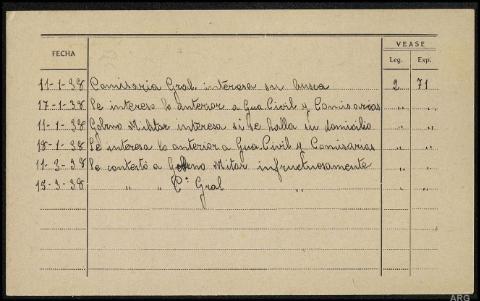 FECHA
VEASE
Leg. Exp.
11-1-38 Comisaria Gral interesa su busca 2 71
17-1-38 Se interesa lo anterior a Gua Civil y Comisarias " "
11-1-38 Gobrno Militar interesa si se halla su domicilio " "
19-1-38 Se interesa lo anterior a Gua. Civil y Comisarias " "
11-3-38 Se contestó a Gobno Militar infructuosamente
15-3-38 " " Cª Gral "
ARG